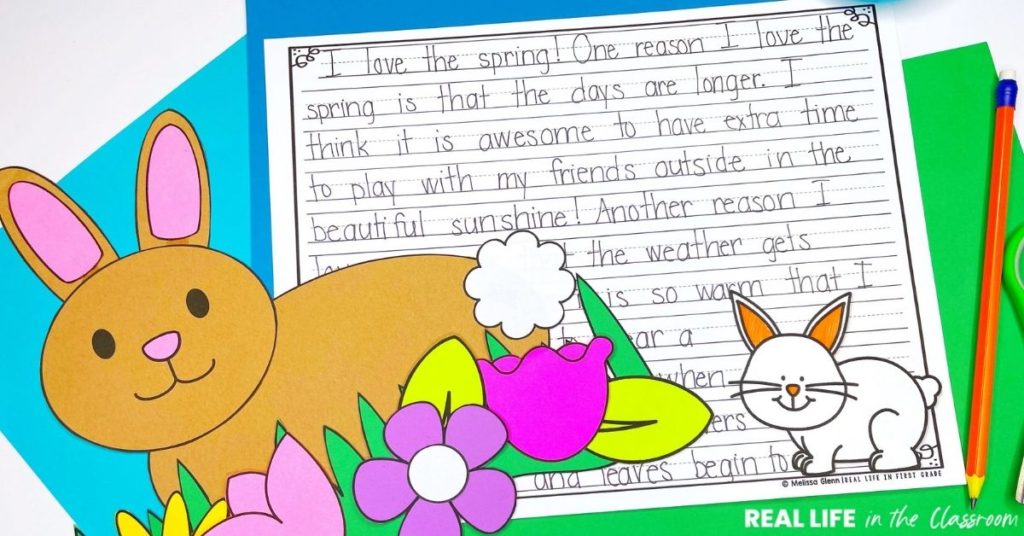 I love the spring! One reason I love the
spring is that the days are longer. I
think it is awesome to have extra time
to play with my friends outside in the
beautiful sunshine! Another reason I
the weather gets
is so warm that I
a
when
and leaves begin to
© Melissa Glenn | REAL LIFE IN FIRST GRADE
REAL LIFE in the Classroom